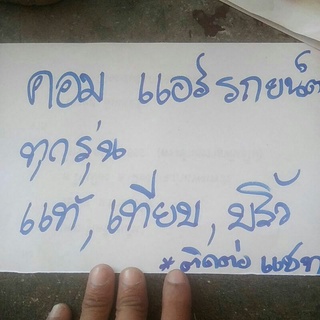 คอม แอร์รถยนต์
ทุกรุ่น
แท้, เทียบ, บริ้ว
*ติดต่อ แชท